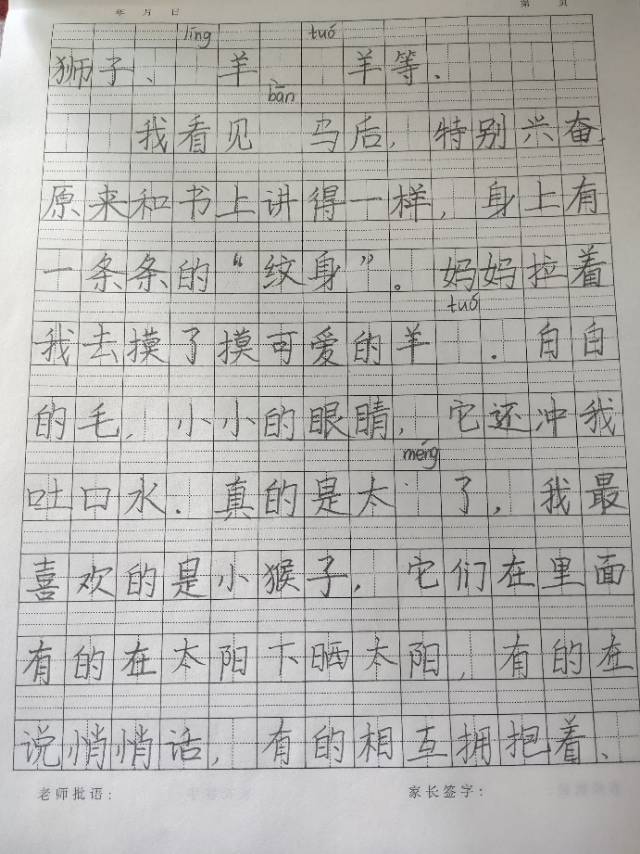 年 月 日 第 页
líng tuó
狮子、 羊 羊等.
bān
我看见 马后, 特别兴奋,
原来和书上讲得一样, 身上有
一条条的“纹身”。妈妈拉着
tuó
我去摸了摸可爱的羊 . 自自
的毛, 小小的眼睛, 它还冲我
méng
吐口水. 真的是太 了, 我最
喜欢的是小猴子, 它们在里面
有的在太阳下晒太阳, 有的在
说悄悄话, 有的相互拥抱着、
老师批语: 家长签字: